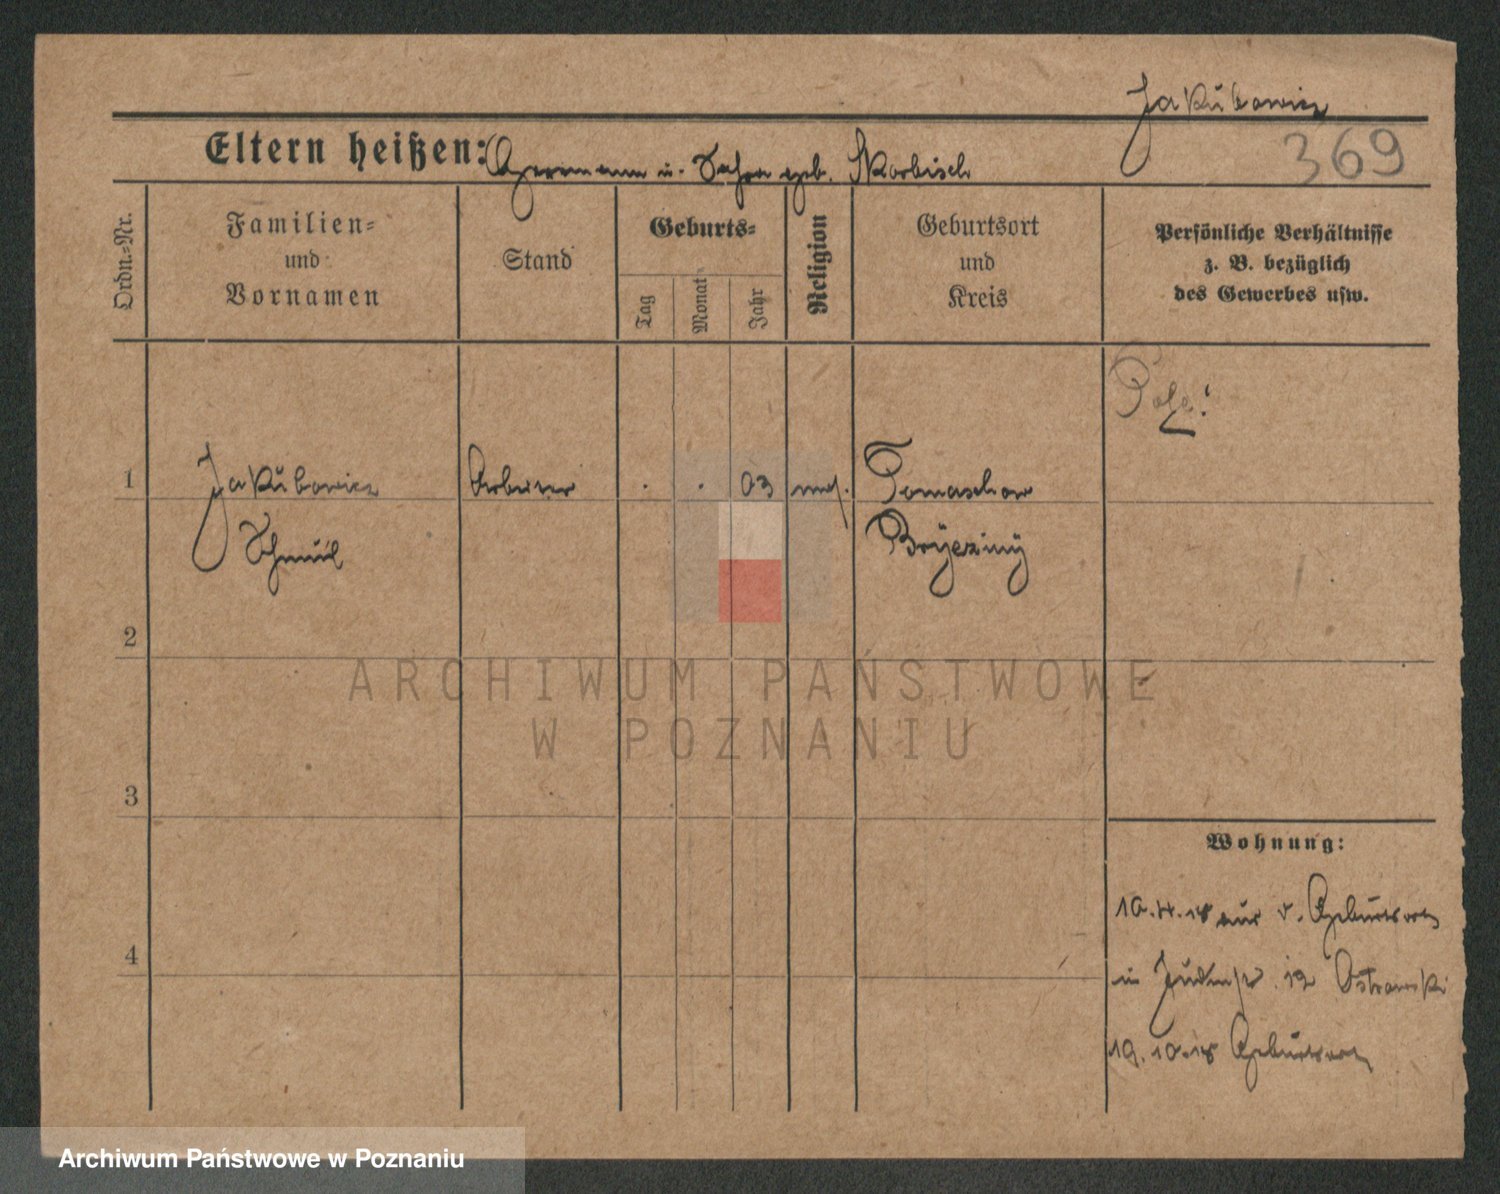 Jakubowicz
369
Eltern heißen: Hermann u. Sahra geb. Skorbisch
Ordn.-Nr.
Familien-
und
Vornamen
Stand
Geburts-
Tag
Monat
Jahr
Religion
Geburtsort
und
Kreis
Persönliche Verhältnisse
z. B. bezüglich
des Gewerbes usw.
Pole!
1 Jakubowicz Arbeiter . . 03 mos. Tomaschow
Schmul
2
3
4
Wohnung:
v. Geburtsort
in Judenstr. 12 Ostrowski
19.10.18 Geburtsort
ARCHIWUM PAŃSTWOWE
W POZNANIU
Archiwum Państwowe w Poznaniu